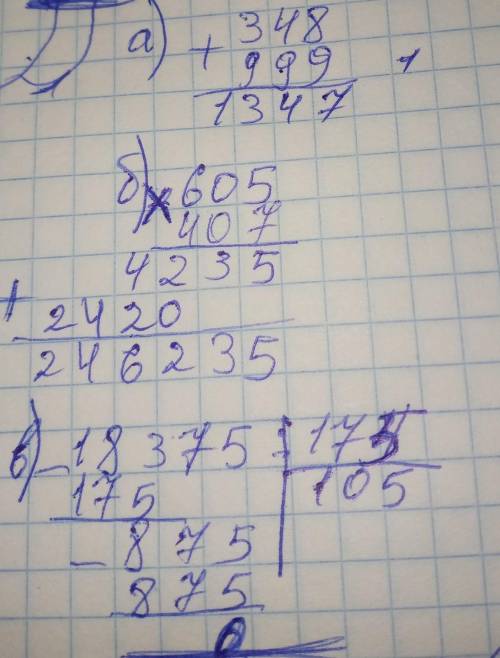 а) 348
+ 999
1347
б) × 605
407
4235
+ 2420
246235
в) - 18375 : 175
175 105
- 875
875
0